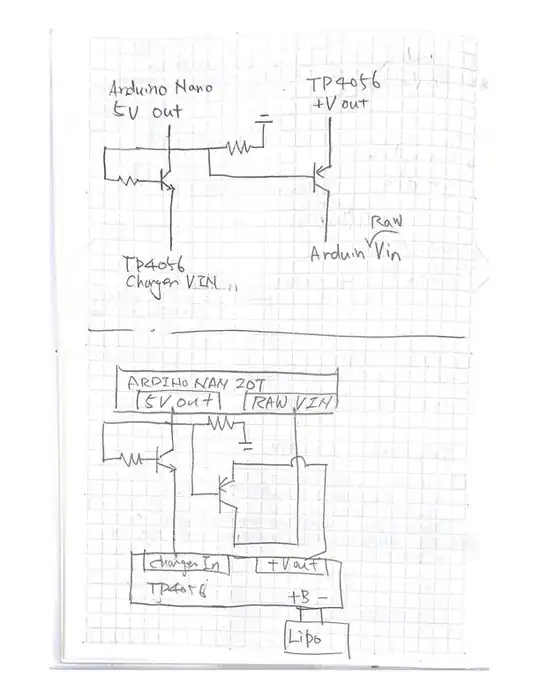 Arduino Nano
5V out
TP4056
+V out
TP4056
Charger VIN
Raw
Arduin Vin
ARDINO NAN 20T
5V out
RAW VIN
Charger In
+V out
TP4056
+B -
Lipo